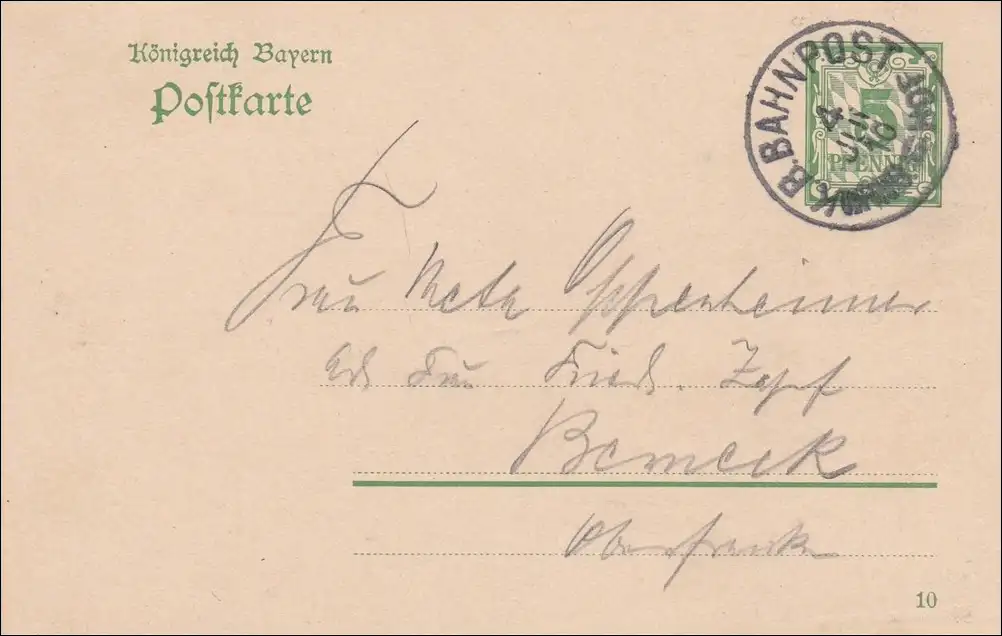 Königreich Bayern
Postkarte
K.B. BAHNPOST
4 JUL 10
5
PFENNIG
Frau Meta Oppenheimer
Frau Fried. Zapf
Berneck
Oberfranken
10